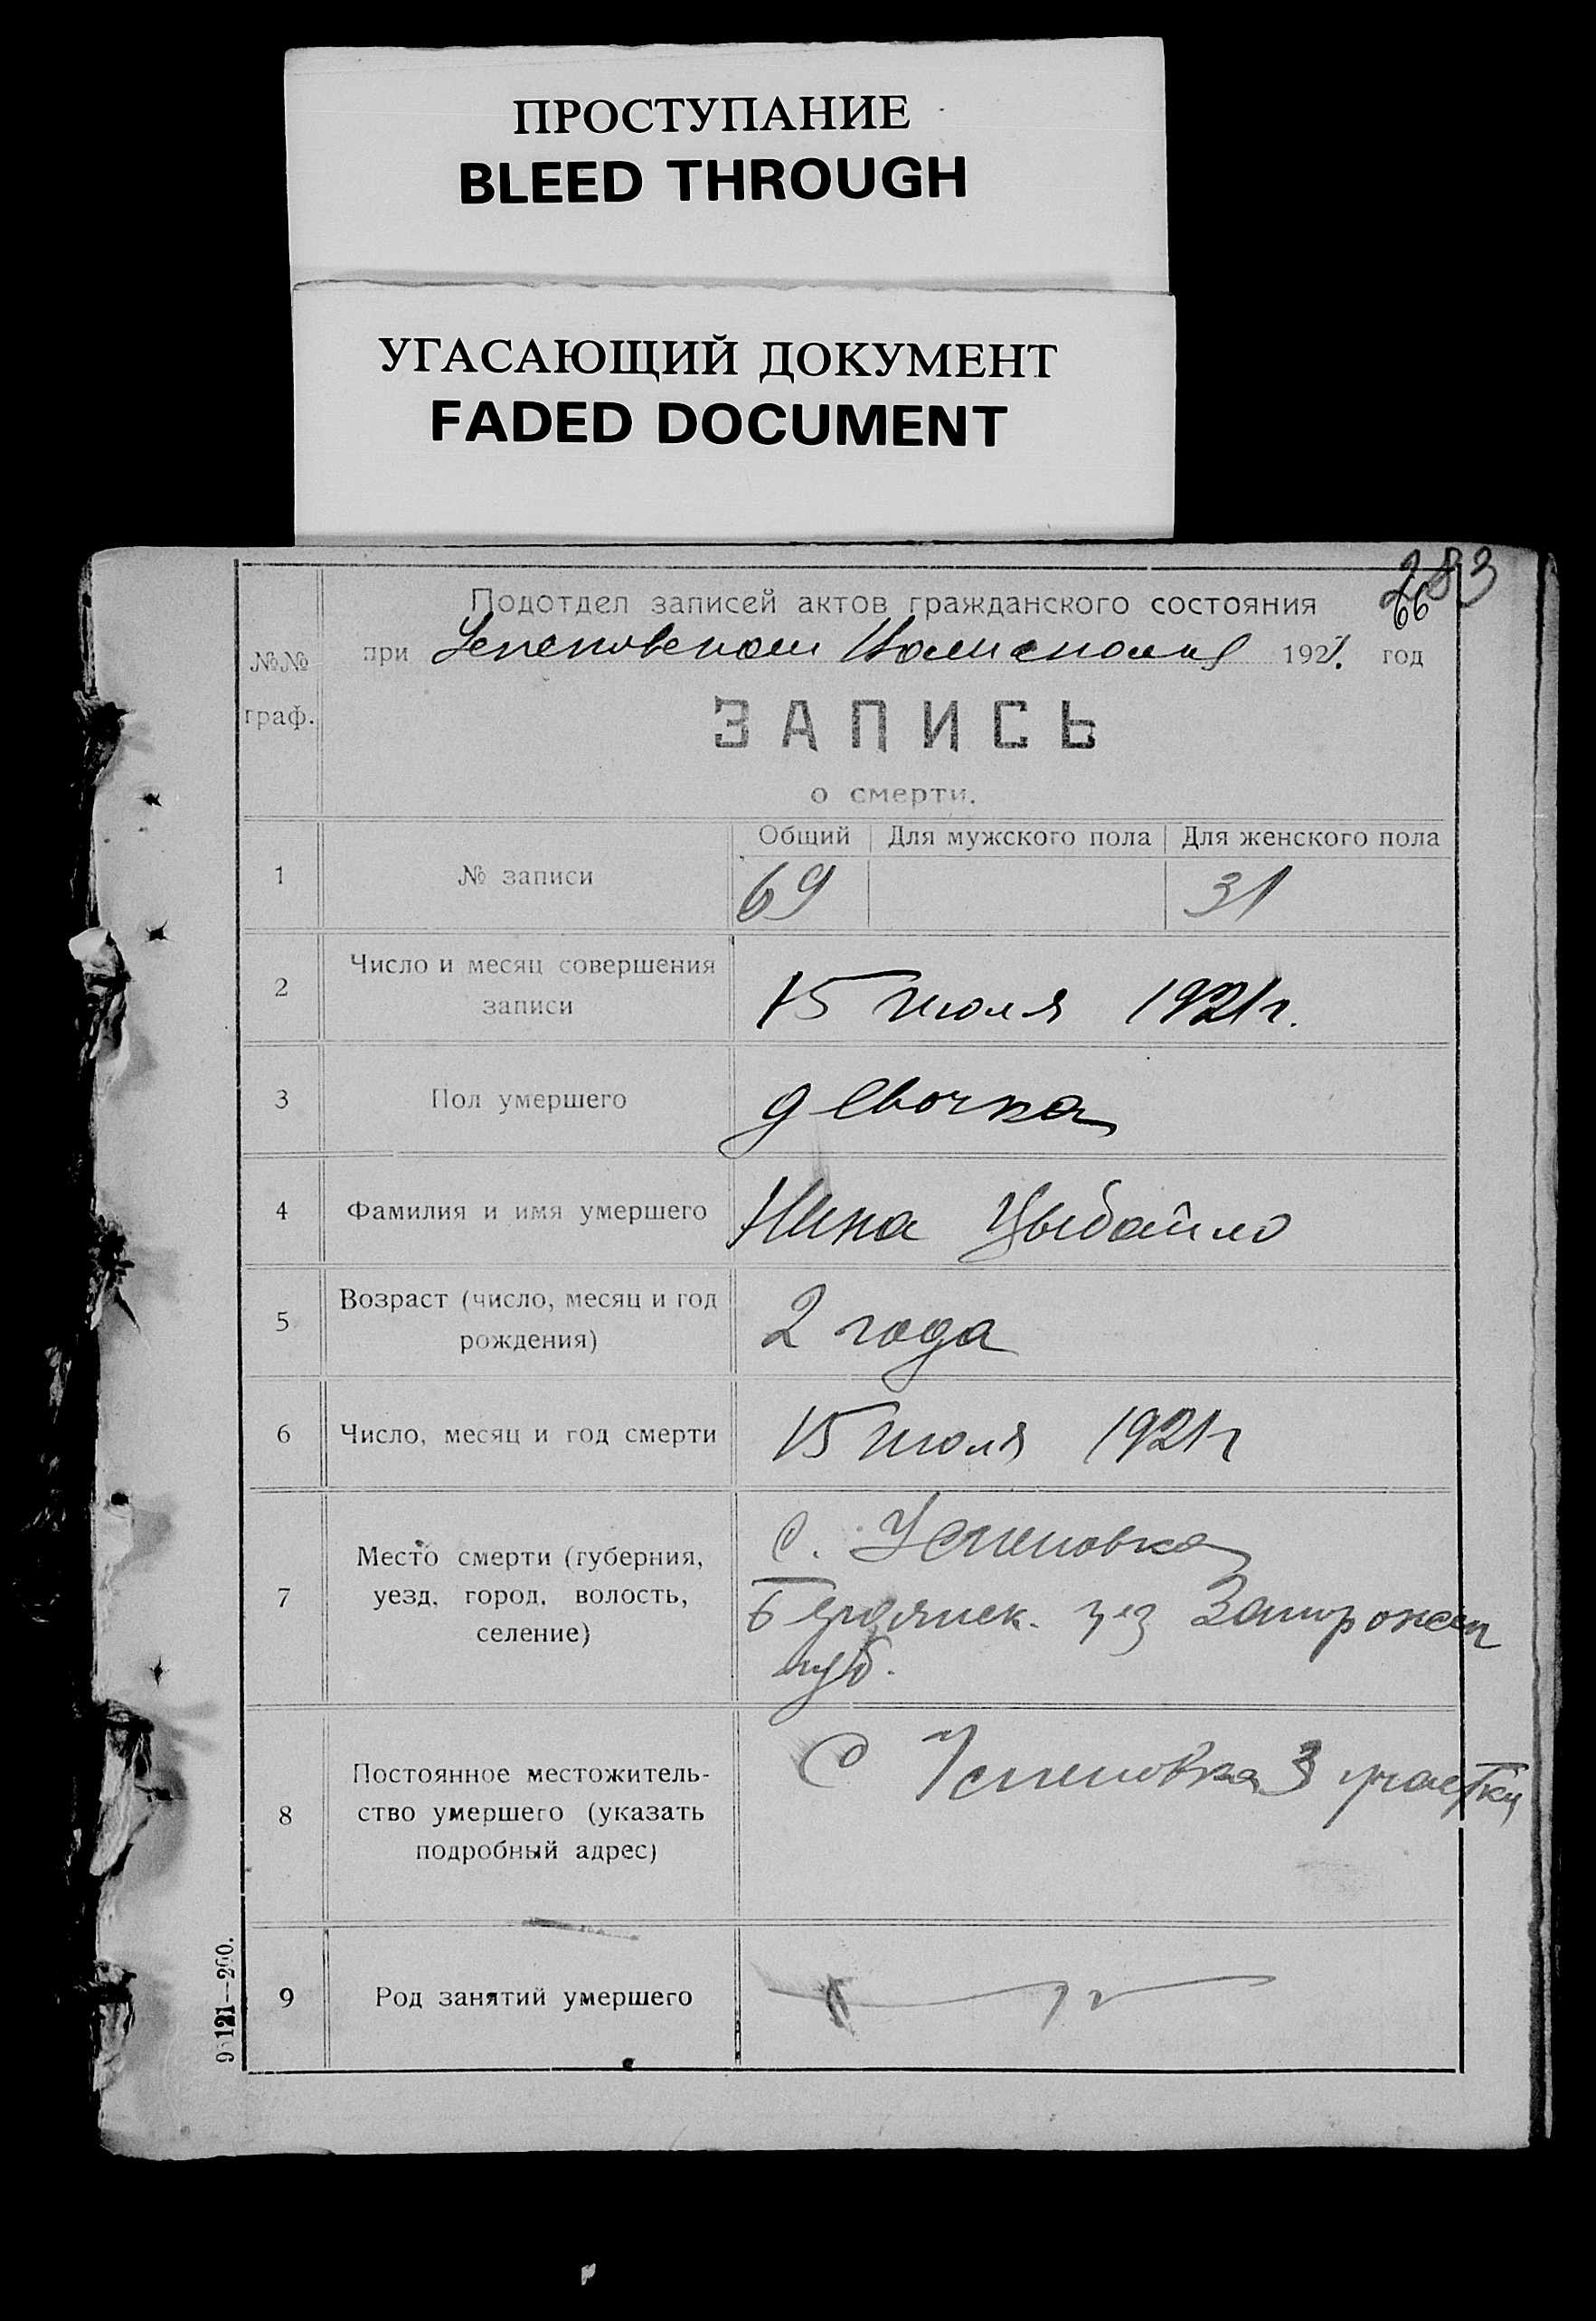 ПРОСТУПАНИЕ
BLEED THROUGH
УГАСАЮЩИЙ ДОКУМЕНТ
FADED DOCUMENT
283
66
Подотдел записей актов гражданского состояния
№№ граф.
при Успеновском Волисполкоме 1921. год
ЗАПИСЬ
о смерти.
Общий Для мужского пола Для женского пола
1 № записи 69 31
2 Число и месяц совершения
записи 15 июля 1921 г.
3 Пол умершего девочка
4 Фамилия и имя умершего Нина Цыбайло
5 Возраст (число, месяц и год
рождения) 2 года
6 Число, месяц и год смерти 15 июля 1921 г
7 Место смерти (губерния,
уезд, город, волость,
селение)
с. Успеновка
Бердянск. уез Запорожск
губ.
8 Постоянное местожитель-
ство умершего (указать
подробный адрес)
С Успеновка 3 участку
9 Род занятий умершего